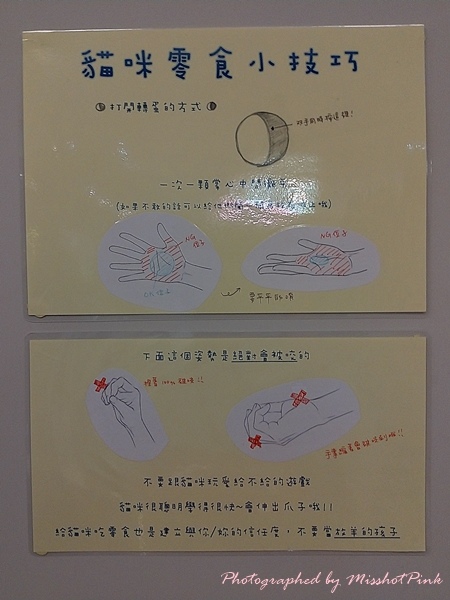 貓咪零食小技巧
打開轉蛋的方式
一次一顆掌心中間
(如果不敢的話可以給他
NG位子
NG位子
OK位子
要平平的唷
下面這個姿勢是絕對會被咬的
不要跟貓咪玩愛給不給的遊戲
貓咪很聰明學得很快~會伸出爪子哦!!
給貓咪吃零食也是建立與你/妳的信任度，不要當放羊的孩子
Photographed by MisshotPink